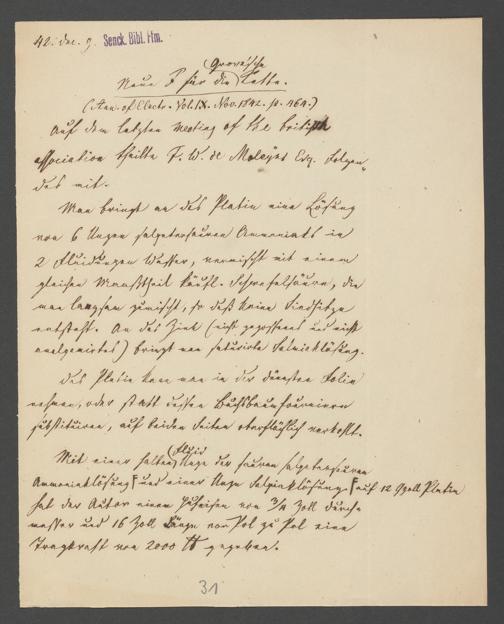 42. Dec. 9. Senck. Bibl. Ffm.
Grove'sche
Neue F für die Kette.
(Ann. of Electr. Vol. IX. Nov. 1842. p. 464.)
Auf dem letzten meeting of the british
association theilte F. W. de Moleyns Esq. Folgen-
des mit.
Man bringt an das Platin eine Lösung
von 6 Unzen salpetersauren Ammoniaks in
2 Fluidunzen Wasser, vermischt mit einem
gleichen Maaßtheil käufl. Schwefelsäure, die
man langsam zumischt, so daß keine Siedhitze
entsteht. An das Zink (nicht gegossenes und nicht
amalgamirtes) bringt man saturirte Salmiaklösung.
Das Platin kann man in der dünnsten Folie
nehmen, oder statt dessen Buchsbaumfournieren
substituiren, auf beiden Seiten oberflächlich verkohlt.
Mit einer halben Fluid Unze der sauren salpetersauren
Ammoniaklösung und einer Unze Salmiaklösung auf 12 Zoll Platin
hat der Autor einem Hufeisen von 3/4 Zoll Durch-
messer und 16 Zoll Länge von Pol zu Pol eine
Tragkraft von 2000 ℔ gegeben.
31